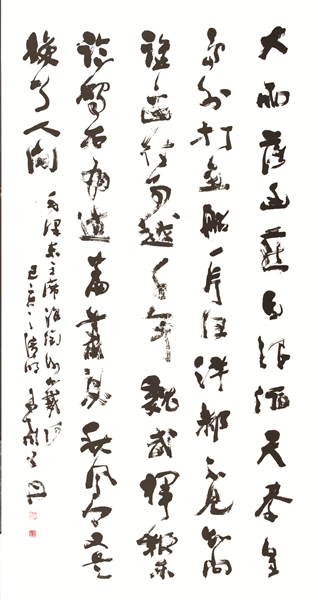 大雨落幽燕白浪滔天秦皇
岛外打鱼船一片汪洋都不见知向
谁边往事越千年魏武挥鞭东
临碣石有遗篇萧瑟秋风今又是
换了人间
毛泽东主席浪淘沙北戴河
之清明